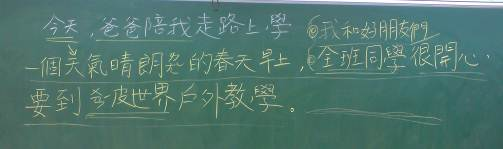 今天，爸爸陪我走路上學 ◎我和好朋友們
一個天氣晴朗的春天早上，◎全班同學很開心
要到皮世界戶外教學。